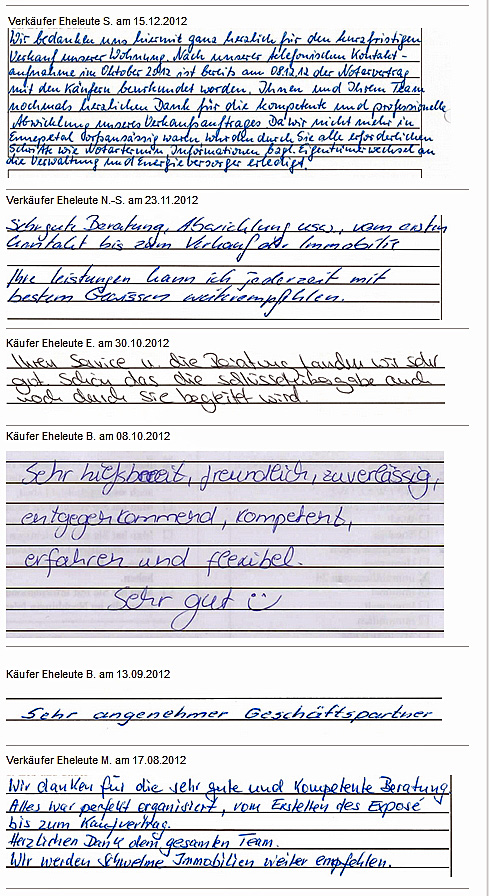 Verkäufer Eheleute S. am 15.12.2012
Wir bedanken uns hiermit ganz herzlich für den kurzfristigen
Verkauf unserer Wohnung. Nach unserer telefonischen Kontakt-
aufnahme im Oktober 2012 ist bereits am 08.12.12 der Notarvertrag
mit den Käufern beurkundet worden. Ihnen und Ihrem Team
nochmals herzlichen Dank für die kompetente und professionelle
Abwicklung unseres Verkaufsauftrages. Da wir nicht mehr in
Ennepetal ortsansässig waren wurden durch Sie alle erforderlichen
Schritte wie Notartermin, Informationen bzgl. Eigentümerwechsel an
die Verwaltung und Energieversorger erledigt.
Verkäufer Eheleute N.-S. am 23.11.2012
Sehr gute Beratung, Abwicklung usw. vom ersten
Kontakt bis zum Verkauf der Immobilie
Ihre Leistungen kann ich jederzeit mit
bestem Gewissen weiterempfehlen.
Käufer Eheleute E. am 30.10.2012
Ihren Service u. die Beratung fanden wir sehr
gut. Schön das die Schlüsselübergabe auch
noch durch sie begleitet wird.
Käufer Eheleute B. am 08.10.2012
Sehr hilfsbereit, freundlich, zuverlässig,
entgegenkommend, kompetent,
erfahren und flexibel.
Sehr gut
Käufer Eheleute B. am 13.09.2012
Sehr angenehmer Geschäftspartner
Verkäufer Eheleute M. am 17.08.2012
Wir danken für die sehr gute und kompetente Beratung
Alles war perfekt organisiert, vom Erstellen des Exposé
bis zum Kaufvertrag.
Herzlichen Dank dem gesamten Team.
Wir werden Schwelme Immobilien weiter empfehlen.